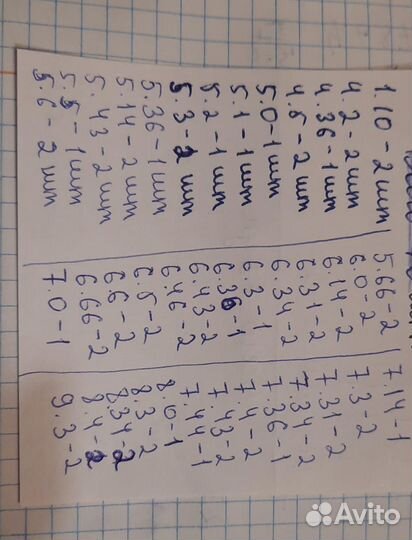 1.10 - 2шт
4.2 - 2шт
4.36 - 1шт
4.6 - 2шт
5.0 - 1шт
5.1 - 1шт
5.2 - 1шт
5.3 - 2шт
5.36 - 1шт
5.14 - 2шт
5.43 - 2шт
5.5 - 1шт
5.6 - 2шт
5.66 - 2
6.0 - 2
6.14 - 2
6.31 - 2
6.34 - 2
6.3 - 1
6.36 - 1
6.43 - 2
6.46 - 2
6.5 - 2
6.6 - 2
6.66 - 2
7.0 - 1
7.14 - 1
7.3 - 2
7.31 - 2
7.34 - 2
7.36 - 1
7.4 - 2
7.43 - 2
7.44 - 1
8.0 - 1
8.3 - 2
8.34 - 2
8.4 - 2
9.3 - 2
Avito